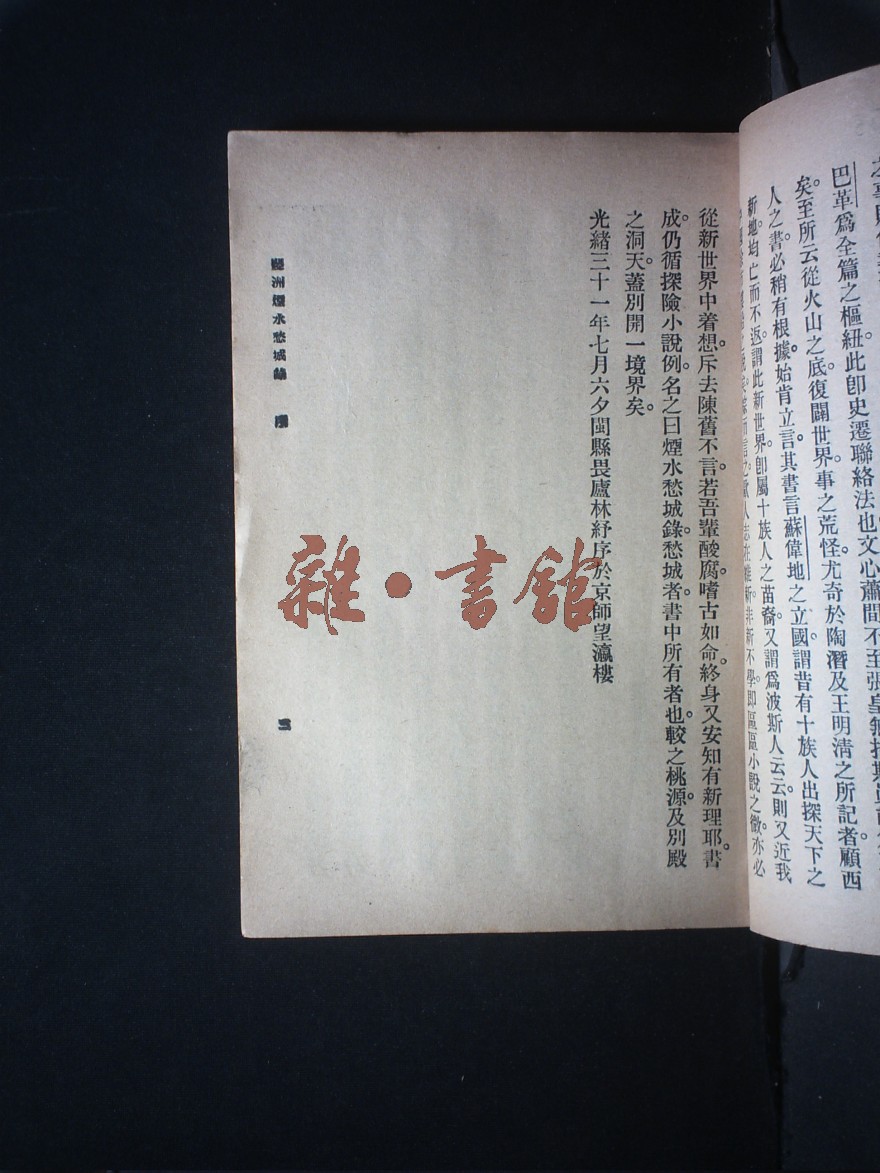 巴革爲全篇之樞紐此卽史遷聯絡法也文心蕭閒不至張皇
矣。至所云從火山之底。復闢世界。事之荒怪。尤奇於陶潛及王明清之所記者。顧西
人之書。必稍有根據。始肯立言。其書言蘇偉地之立國。謂昔有十族人出探天下之
新地。均亡而不返。謂此新世界。卽屬十族人之苗裔。又謂爲波斯人云云。則又近我
人志在維新。非新不學。卽區區小說之微。亦必
從新世界中着想。斥去陳舊不言。若吾輩酸腐嗜古如命。終身又安知有新理耶。書
成。仍循探險小說例。名之曰煙水愁城錄。愁城者。書中所有者也。較之桃源及別殿
之洞天。蓋別開一境界矣。
光緒三十一年七月六夕閩縣畏廬林紓序於京師望瀛樓
洲煙水愁城錄
三
雜·書館